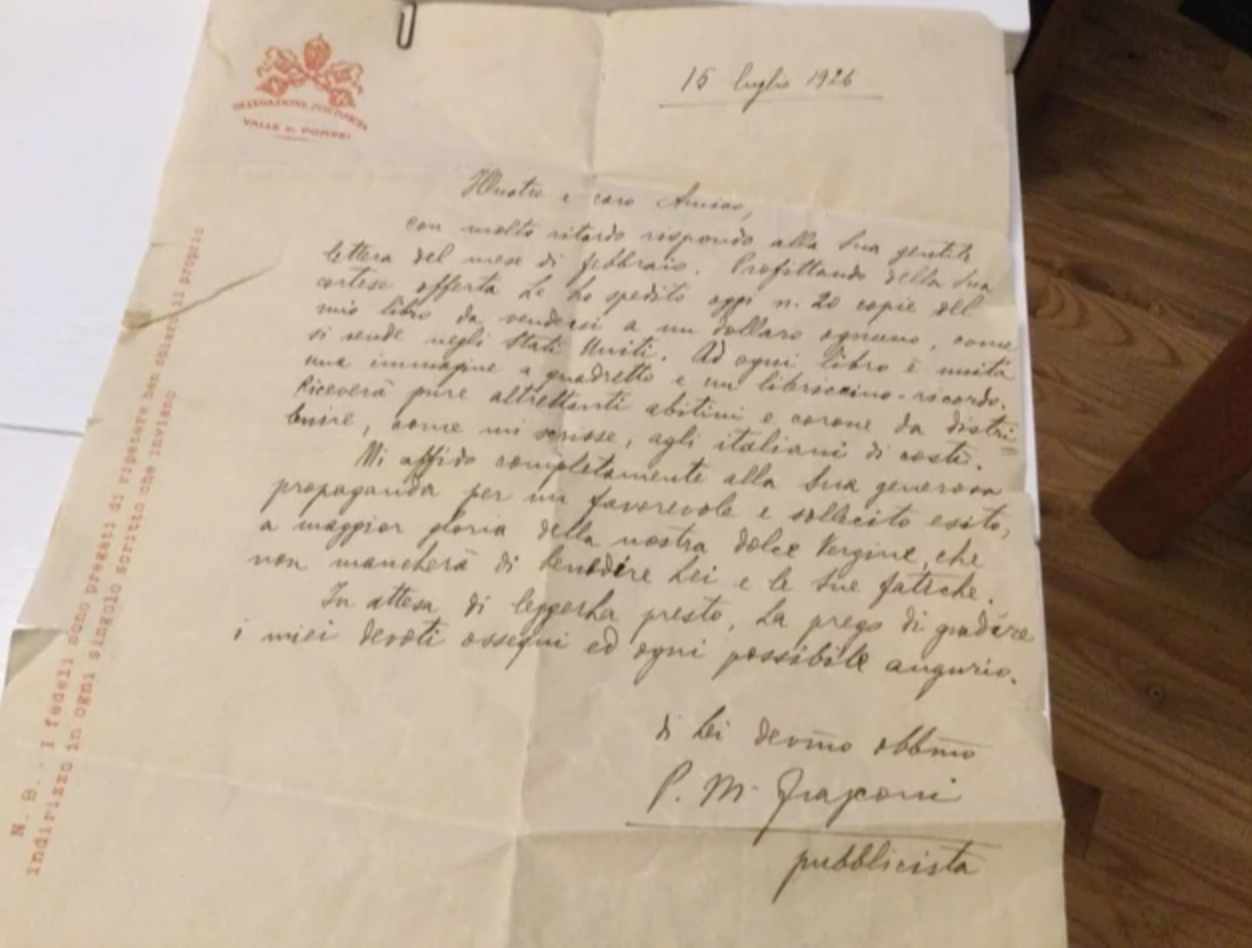 DELEGAZIONE PONTIFICIA
VALLE DI POMPEI
16 luglio 1926
Illustre e caro Amico,
con molto ritardo rispondo alla Sua gentile
lettera del mese di febbraio. Profittando della Sua
cortese offerta Le ho spedito oggi n. 20 copie del
mio libro da vendersi a un dollaro ognuno, come
si vende negli Stati Uniti. Ad ogni libro è unita
una immagine a quadretto e un libriccino-ricordo.
Riceverà pure altrettanti abitini e corone da distri=
buire, come mi scrisse, agli italiani di costì.
Mi affido completamente alla Sua generosa
propaganda per un favorevole e sollecito esito,
a maggior gloria della nostra dolce Vergine, che
non mancherà di benedire Lei e le Sue fatiche.
In attesa di leggerLa presto, La prego di gradire
i miei devoti ossequi ed ogni possibile augurio.
di Lei devmo obbmo
P. M.
pubblicista
N. B. - I fedeli sono pregati di ripetere ben chiaro il proprio
indirizzo in ogni singolo scritto che inviano